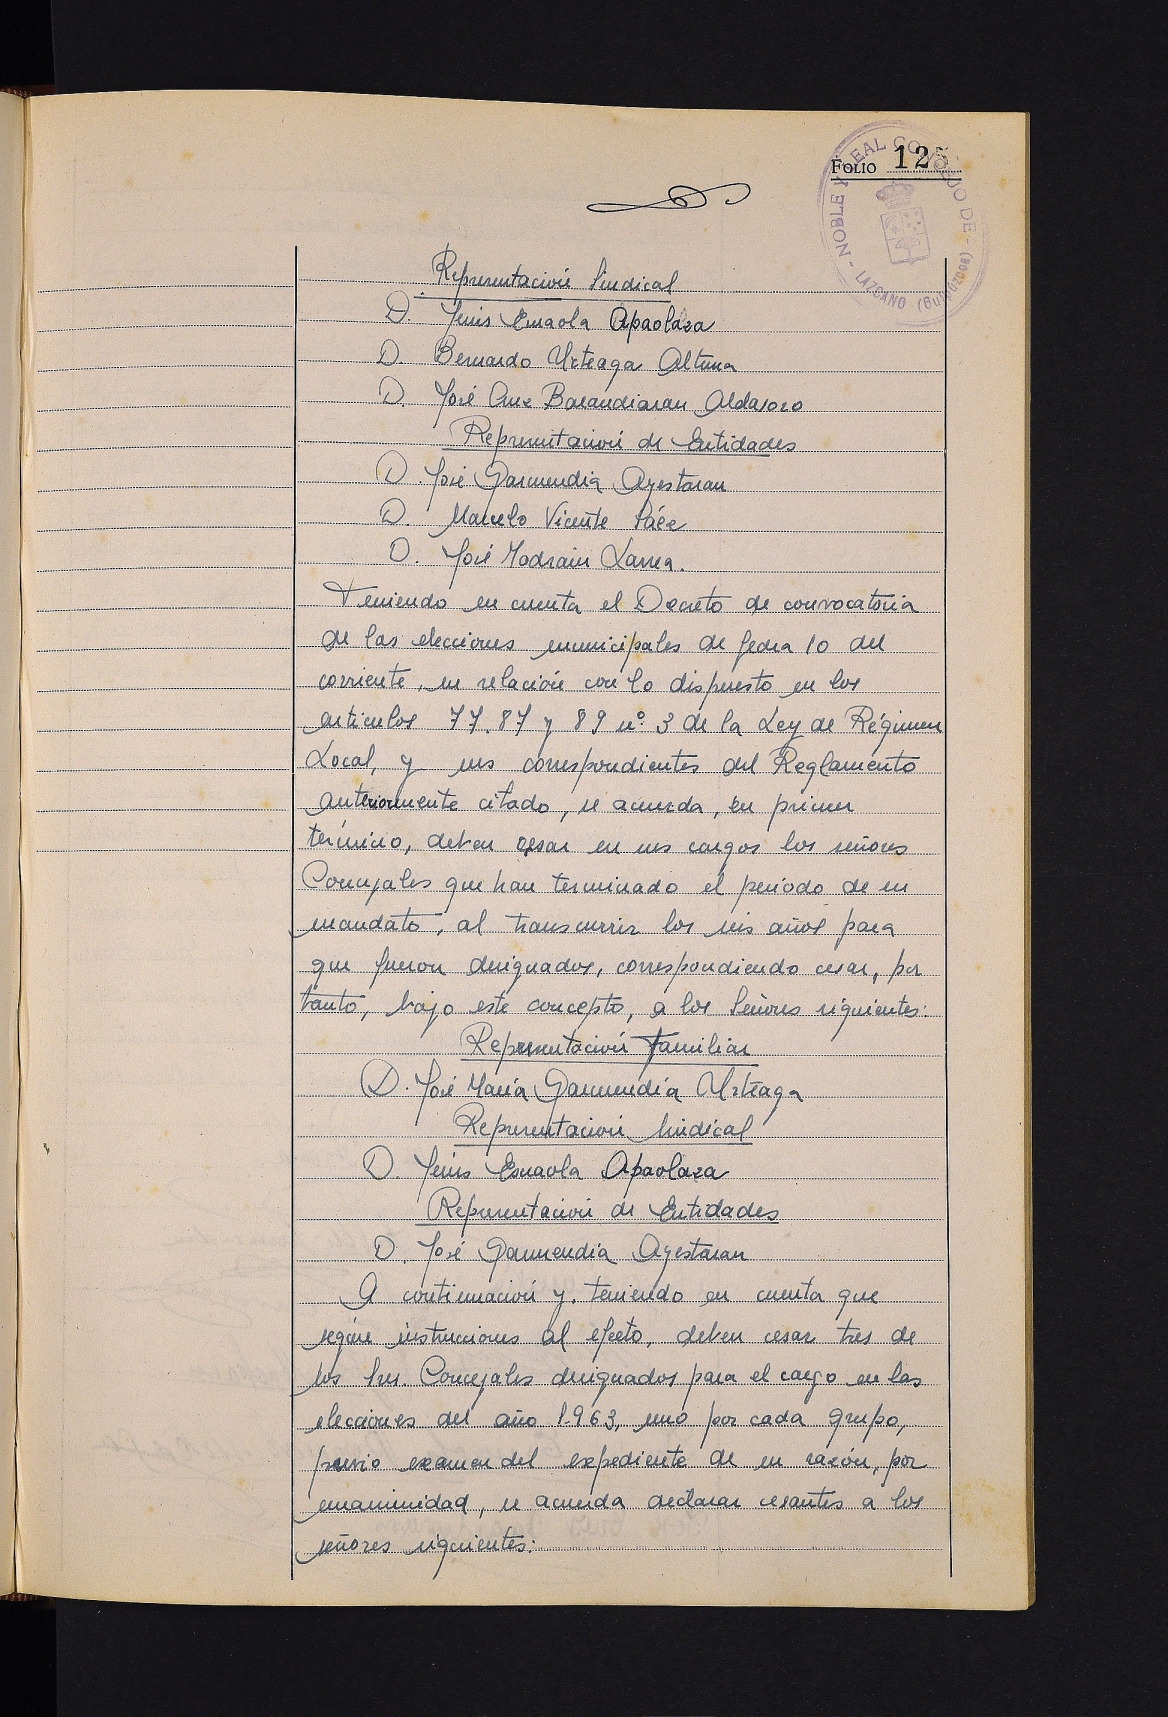 FOLIO 125
NOBLE Y REAL CONCEJO DE - LAZCANO (Guipúzcoa) -
Representación Sindical
D. Jesús Esnaola Apaolaza
D. Bernardo Urteaga Altuna
D. José Cruz Barandiaran Aldasoro
Representación de Entidades
D. José Garmendia Ayestaran
D. Marcelo Vicente Sáez
D. José Larrea.
Teniendo en cuenta el Decreto de convocatoria
de las elecciones municipales de fecha 10 del
corriente, en relación con lo dispuesto en los
artículos 77. 87 y 89 nº 3 de la Ley de Régimen
Local, y sus correspondientes del Reglamento
anteriormente citado, se acuerda, en primer
término, deben cesar en sus cargos los señores
Concejales que han terminado el periodo de su
mandato, al transcurrir los seis años para
que fueron designados, correspondiendo cesar, por
tanto, bajo este concepto, a los Señores siguientes:
Representación Familiar
D. José María Garmendia Urteaga
Representación Sindical
D. Jesús Esnaola Apaolaza
Representación de Entidades
D. José Garmendia Ayestaran
A continuación y teniendo en cuenta que
según instrucciones al efecto, deben cesar tres de
los Sres. Concejales designados para el cargo en las
elecciones del año 1.963, uno por cada grupo,
previo examen del expediente de su razón, por
unanimidad, se acuerda declarar cesantes a los
señores siguientes: